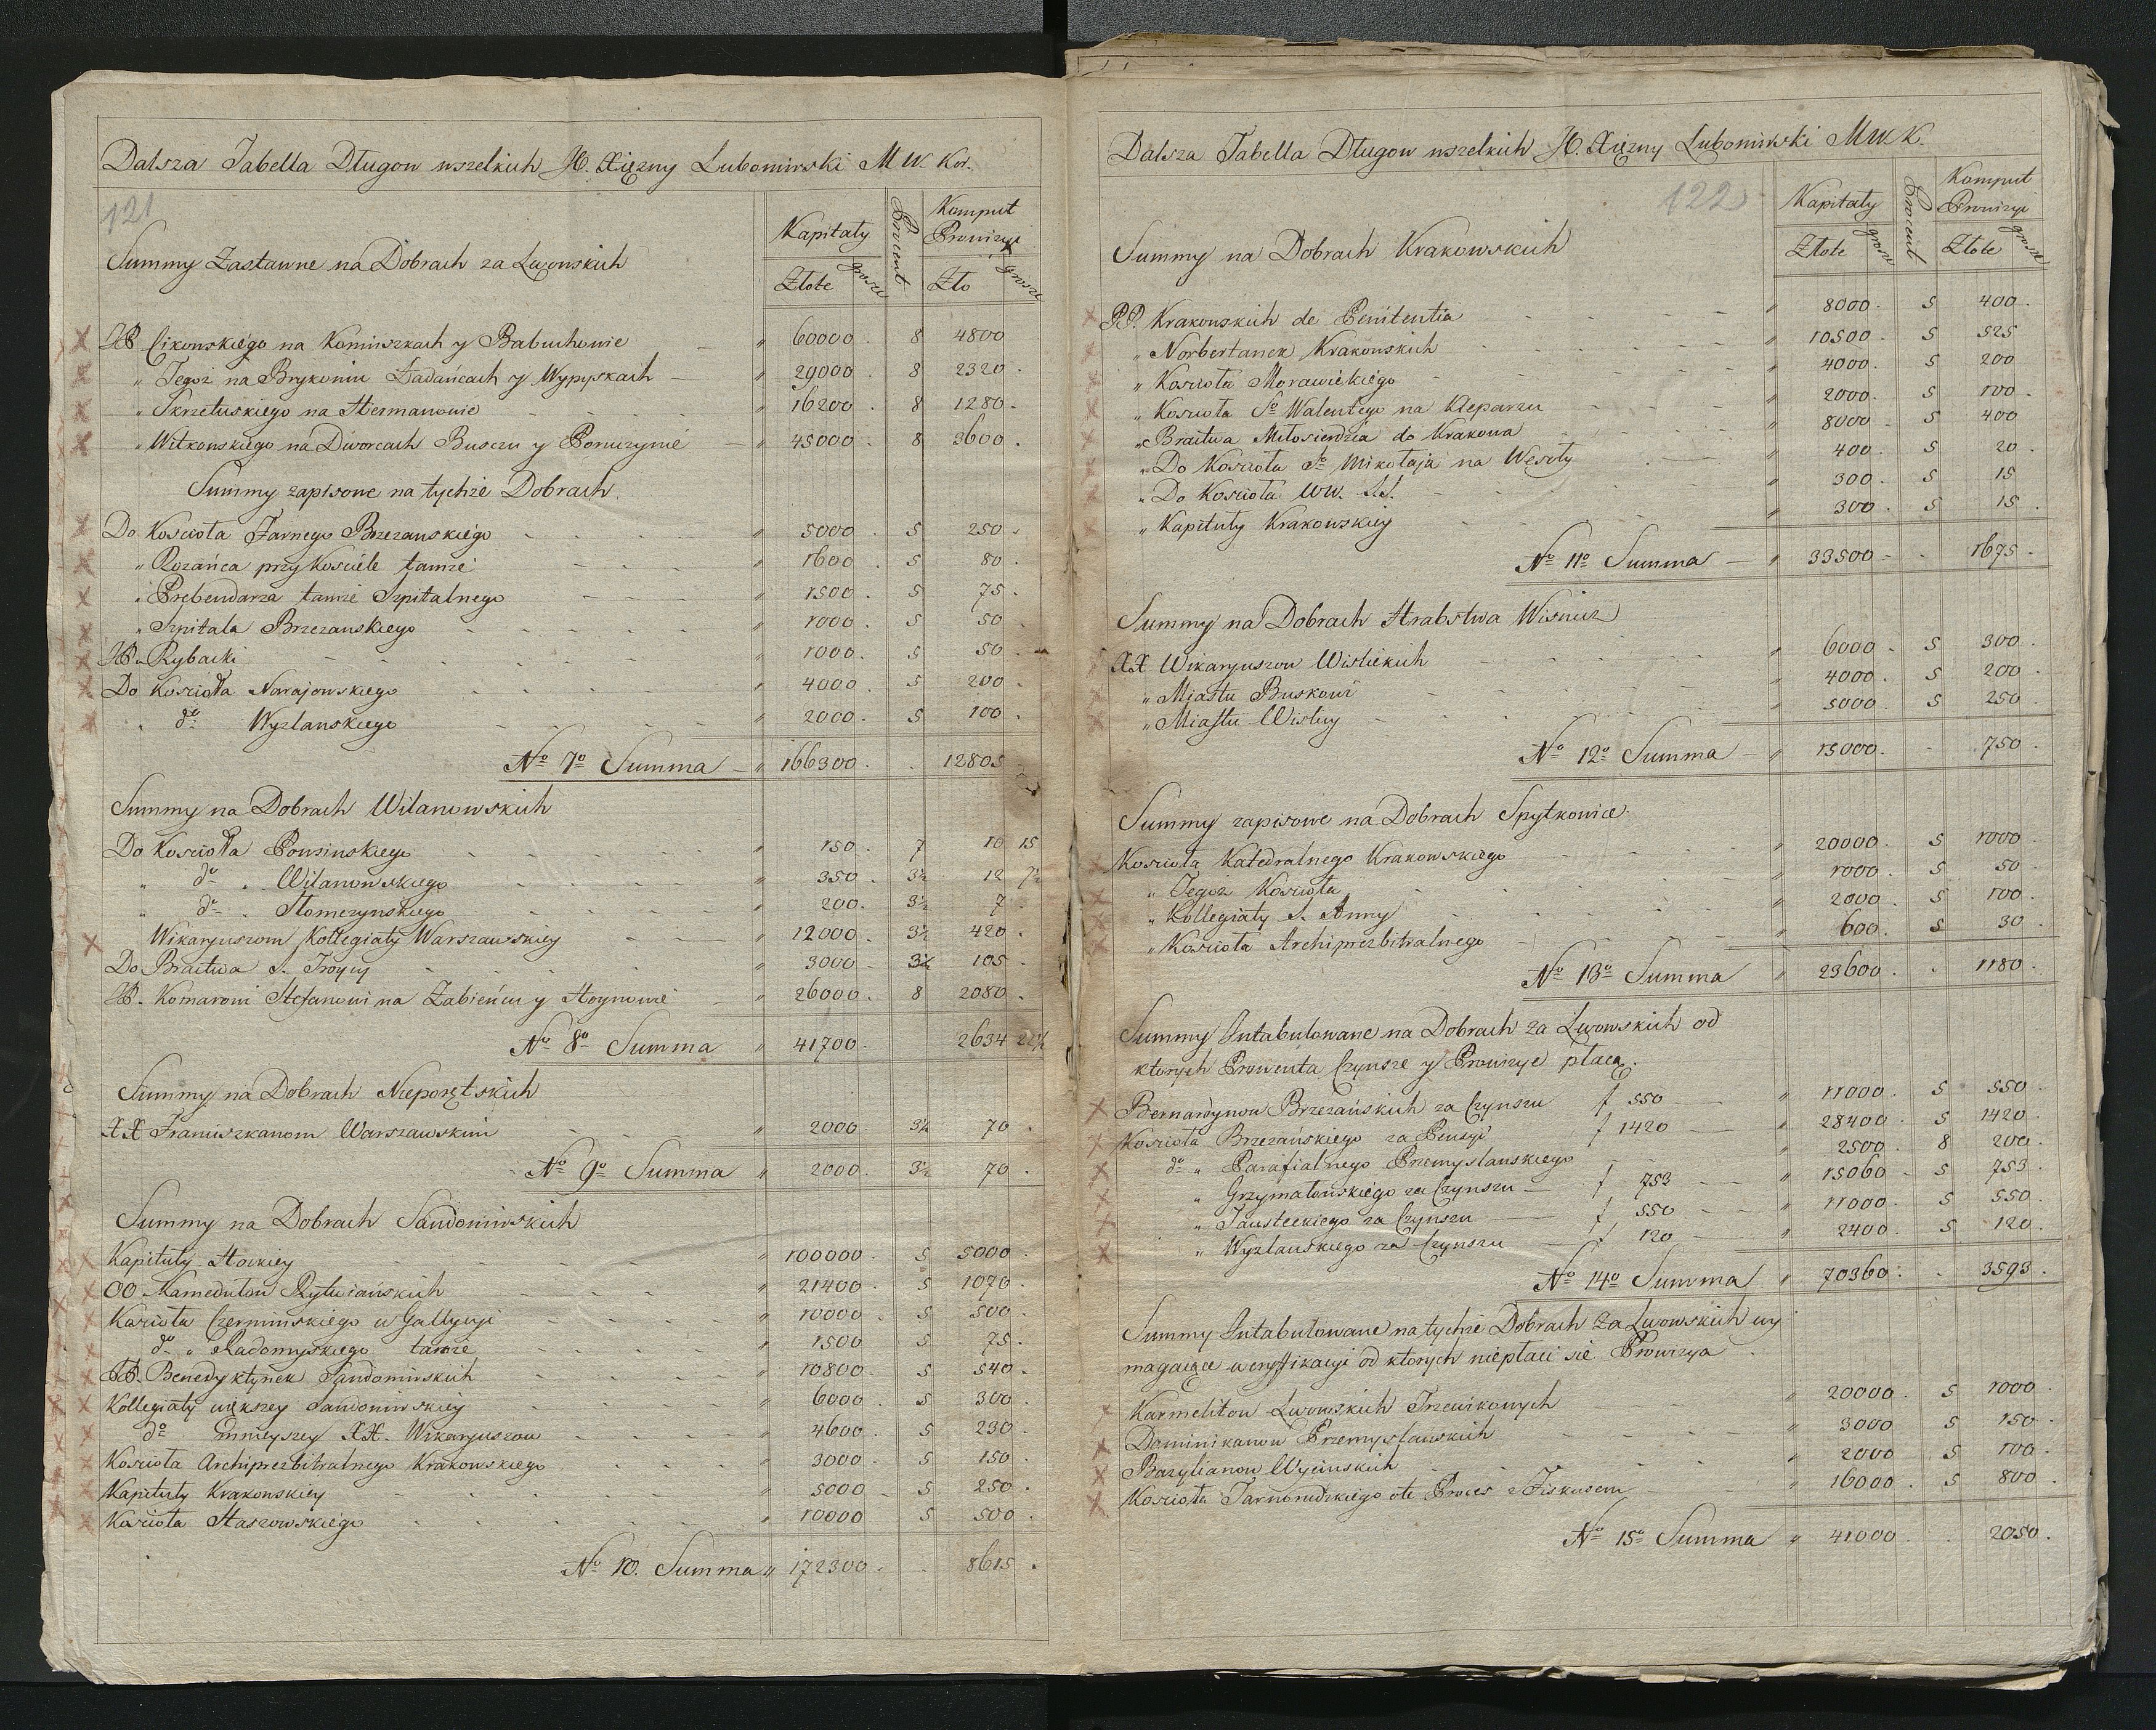 Dalsza Tabella Długow wszelkich JO. Xiężny Lubomirski M W Kor.
121
Kapitały Procent Komput Prowizyi
Złote grosze Zło grosze
Summy Zastawne na Dobrach za Lwowskich
JP Cikowskiego na Kominszkach y Babuchowie " 60000 . 8 4800
" Tegoż na Brykoniu Ładańcach y Wypyskach " 29000 . 8 2320 .
" Skrzetuskiego na Hermanowie " 16200 . 8 1280 .
" Witkowskiego na Dworcach Busczu y Poruczynie " 45000 . 8 3600 .
Summy zapisowe na tychże Dobrach.
Do Kościoła Farnego Brzezanskiego " 5000 . 5 250 .
" Rożańca przy Kościele tamże " 1600 . 5 80 .
" Prebendarza tamże Szpitalnego " 1500 . 5 75 .
" Szpitala Brzezanskiego " 1000 . 5 50 .
JP. Rybacki " 1000 . 5 50 .
Do Kościoła Narajowskiego " 4000 . 5 200 .
" do Wyzlanskiego " 2000 . 5 100 .
No 7o Summa " 166300 . . 12805
Summy na Dobrach Wilanowskich
Do Kościoła Powsinskiego " 150 . 7 10 15
" do " Wilanowskiego " 350 . 3½ 12 7½
" do " Słomczynskiego " 200 . 3½ 7 .
Wikaryuszom Kollegiaty Warszawskiey " 12000 . 3½ 420 .
Do Bractwa S. Troycy " 3000 . 3½ 105 .
JP. Komaroni Stefanowi na Zabieńcu y Hoynowie " 26000 . 8 2080 .
No 8o Summa " 41700 . 2634 22½
Summy na Dobrach Nieporętskich
XX Franciszkanom Warszawskim " 2000 . 3½ 70 .
No 9o Summa " 2000 . 3½ 70 .
Summy na Dobrach Sandomirskich
Kapituły " 100000 . 5 5000 .
OO Kamedułow Rytwiańskich " 21400 . 5 1070 .
Kościoła Czerminskiego w Gallycyi " 10000 . 5 500 .
do " Radomyskiego tamże " 1500 5 75 .
PP. Benedyktynek Sandomirskich " 10800 . 5 540 .
Kollegiaty większey Sandomirskiey " 6000 . 5 300 .
do mnieyszey XX. Wikaryuszow " 4600 . 5 230 .
Kościoła Archiprezbitralnego Krakowskiego " 3000 . 5 150 .
Kapituły Krakowskiey " 5000 . 5 250 .
Kościoła Staszowskiego " 10000 5 500 .
No 10. Summa " 172300 . . 8615 .
Dalsza Tabella Długow wszelkich JO. Xiężny Lubomirski M W K.
122
Kapitały Procent Komput Prowizyi
Złote grosze Złote grosze
Summy na Dobrach Krakowskich
PP. Krakowskich de Penitentia " 8000 . 5 400 .
" Norbertanek Krakowskich " 10500 . 5 525
" Kościoła Morawickiego " 4000 . 5 200
" Kościoła So Walentego na Kleparzu " 2000 . 5 100 .
" Bractwa Miłosierdzia do Krakowa " 8000 . 5 400
" Do Kościoła So Mikołaja na Wesoły " 400 . 5 20 .
" Do Kościoła WW. S.S. " 300 . 5 15
" Kapituły Krakowskiey " 300 . 5 15 .
No 11o Summa " 33500 . . 1675 .
Summy na Dobrach Hrabstwa Wisnicz
XX Wikaryuszow Wislickich " 6000 . 5 300 .
" Miastu Buskowi " 4000 . 5 200 .
" Miastu Wislicy " 5000 . 5 250 .
No 12o Summa " 15000 . . 750 .
Summy zapisowe na Dobrach Spytkowice
Kościoła Katedralnego Krakowskiego " 20000 . 5 1000 .
" Tegoż Kościoła " 1000 . 5 50 .
" Kollegiaty S. Anny " 2000 . 5 100 .
" Kościoła Archiprezbitralnego " 600 . 5 30 .
No 13o Summa " 23600 . . 1180 .
Summy Intabulowane na Dobrach za Lwowskich od
ktorych Prowenta Czynsze y Prowizye płacą.
Bernardynow Brzezańskich za Czynszu f 550 " 11000 . 5 550 .
Kościoła Brzezańskiego za Pensyi f 1420 " 28400 . 5 1420 .
do " Parafialnego Przemyslanskiego " 2500 . 8 200 .
" Grzymałowskiego za Czynszu f 753 " 15060 . 5 753 .
" za Czynszu f 550 " 11000 . 5 550 .
" Wyzlanskiego za Czynszu f 120 " 2400 . 5 120 .
No 14o Summa " 70360 . . 3593 .
Summy Intabulowane na tychże Dobrach za Lwowskich wy
magaiące weryfikacyi od ktorych niepłaci się Prowizya .
Karmelitow Lwowskich Trzewikowych " 20000 . 5 1000 .
Dominikanow Przemyslawskich " 3000 5 150 .
Bazylianow Wycinskich " 2000 5 100 .
Kościoła Tarnorudzkiego ote Proces z Fiskusem " 16000 . 5 800 .
No 15o Summa " 41000 . 2050 .